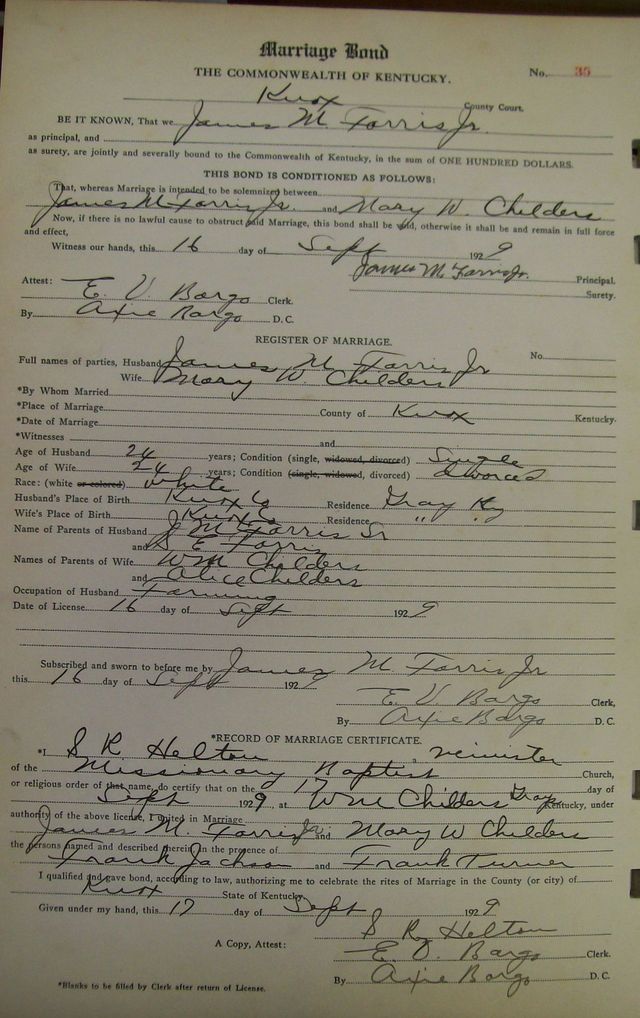 Marriage Bond
THE COMMONWEALTH OF KENTUCKY. No. 35
Knox County Court.
BE IT KNOWN, That we James M Farris Jr.
as principal, and
as surety, are jointly and severally bound to the Commonwealth of Kentucky, in the sum of ONE HUNDRED DOLLARS.
THIS BOND IS CONDITIONED AS FOLLOWS:
That, whereas Marriage is intended to be solemnized between
James M Farris Jr. and Mary W. Childers
Now, if there is no lawful cause to obstruct said Marriage, this bond shall be void, otherwise it shall be and remain in full force
and effect,
Witness our hands, this 16 day of Sept 1929
James M. Farris Jr. Principal.
Attest: Surety.
E. V. Bargo Clerk.
By Axie Bargo D. C.
REGISTER OF MARRIAGE.
Full names of parties, Husband James M Farris Jr No.
Wife Mary W. Childers
*By Whom Married
*Place of Marriage County of Knox Kentucky.
*Date of Marriage
*Witnesses and
Age of Husband 24 years; Condition (single, widowed, divorced) Single
Age of Wife 24 years; Condition (single, widowed, divorced) divorced
Race: (white or colored) White
Husband's Place of Birth Knox Co Residence Gray Ky
Wife's Place of Birth Knox Co Residence " "
Name of Parents of Husband J M Farris Sr
and S E Farris
Names of Parents of Wife W M Childers
and Alice Childers
Occupation of Husband Farming
Date of License 16 day of Sept 1929
Subscribed and sworn to before me by James M. Farris Jr
this 16 day of Sept 1929
E. V. Bargo Clerk,
By Axie Bargo D. C.
*RECORD OF MARRIAGE CERTIFICATE.
*I S R Helton, a minister
of the Missionary Baptist Church,
or religious order of that name, do certify that on the 17 day of
Sept 1929, at W M Childers Gray Kentucky, under
authority of the above license, I united in Marriage
James M. Farris Jr. and Mary W Childers
the persons named and described therein in the presence of
Frank Jackson and Frank Turner
I qualified and gave bond, according to law, authorizing me to celebrate the rites of Marriage in the County (or city) of
Knox State of Kentucky.
Given under my hand, this 17 day of Sept 1929
S R Helton
A Copy, Attest: E. V. Bargo Clerk.
By Axie Bargo D. C.
*Blanks to be filled by Clerk after return of License.